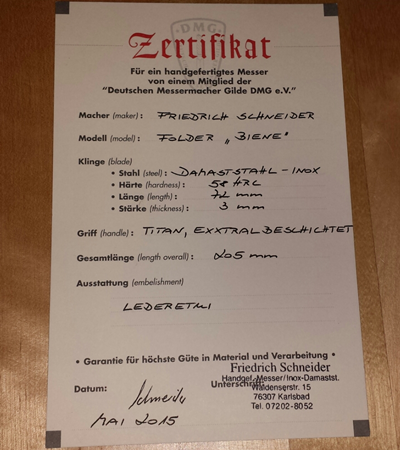 DMG
Zertifikat
Für ein handgefertigtes Messer
von einem Mitglied der
"Deutschen Messermacher Gilde DMG e.V."
Macher (maker): FRIEDRICH SCHNEIDER
Modell (model): FOLDER „BIENE"
Klinge (blade)
• Stahl (steel): DAMASTSTAHL-INOX
• Härte (hardness): 58 HRC
• Länge (length): 72 mm
• Stärke (thickness): 3 mm
Griff (handle): TITAN, EXXTRALBESCHICHTET
Gesamtlänge (length overall): 205 mm
Ausstattung (embelishment)
LEDERETUI
• Garantie für höchste Güte in Material und Verarbeitung •
Friedrich Schneider
Handgef.-Messer/Inox-Damastst.
Datum: Schneider Unterschrift: Waldenserstr. 15
76307 Karlsbad
MAI 2015 Tel. 07202-8052